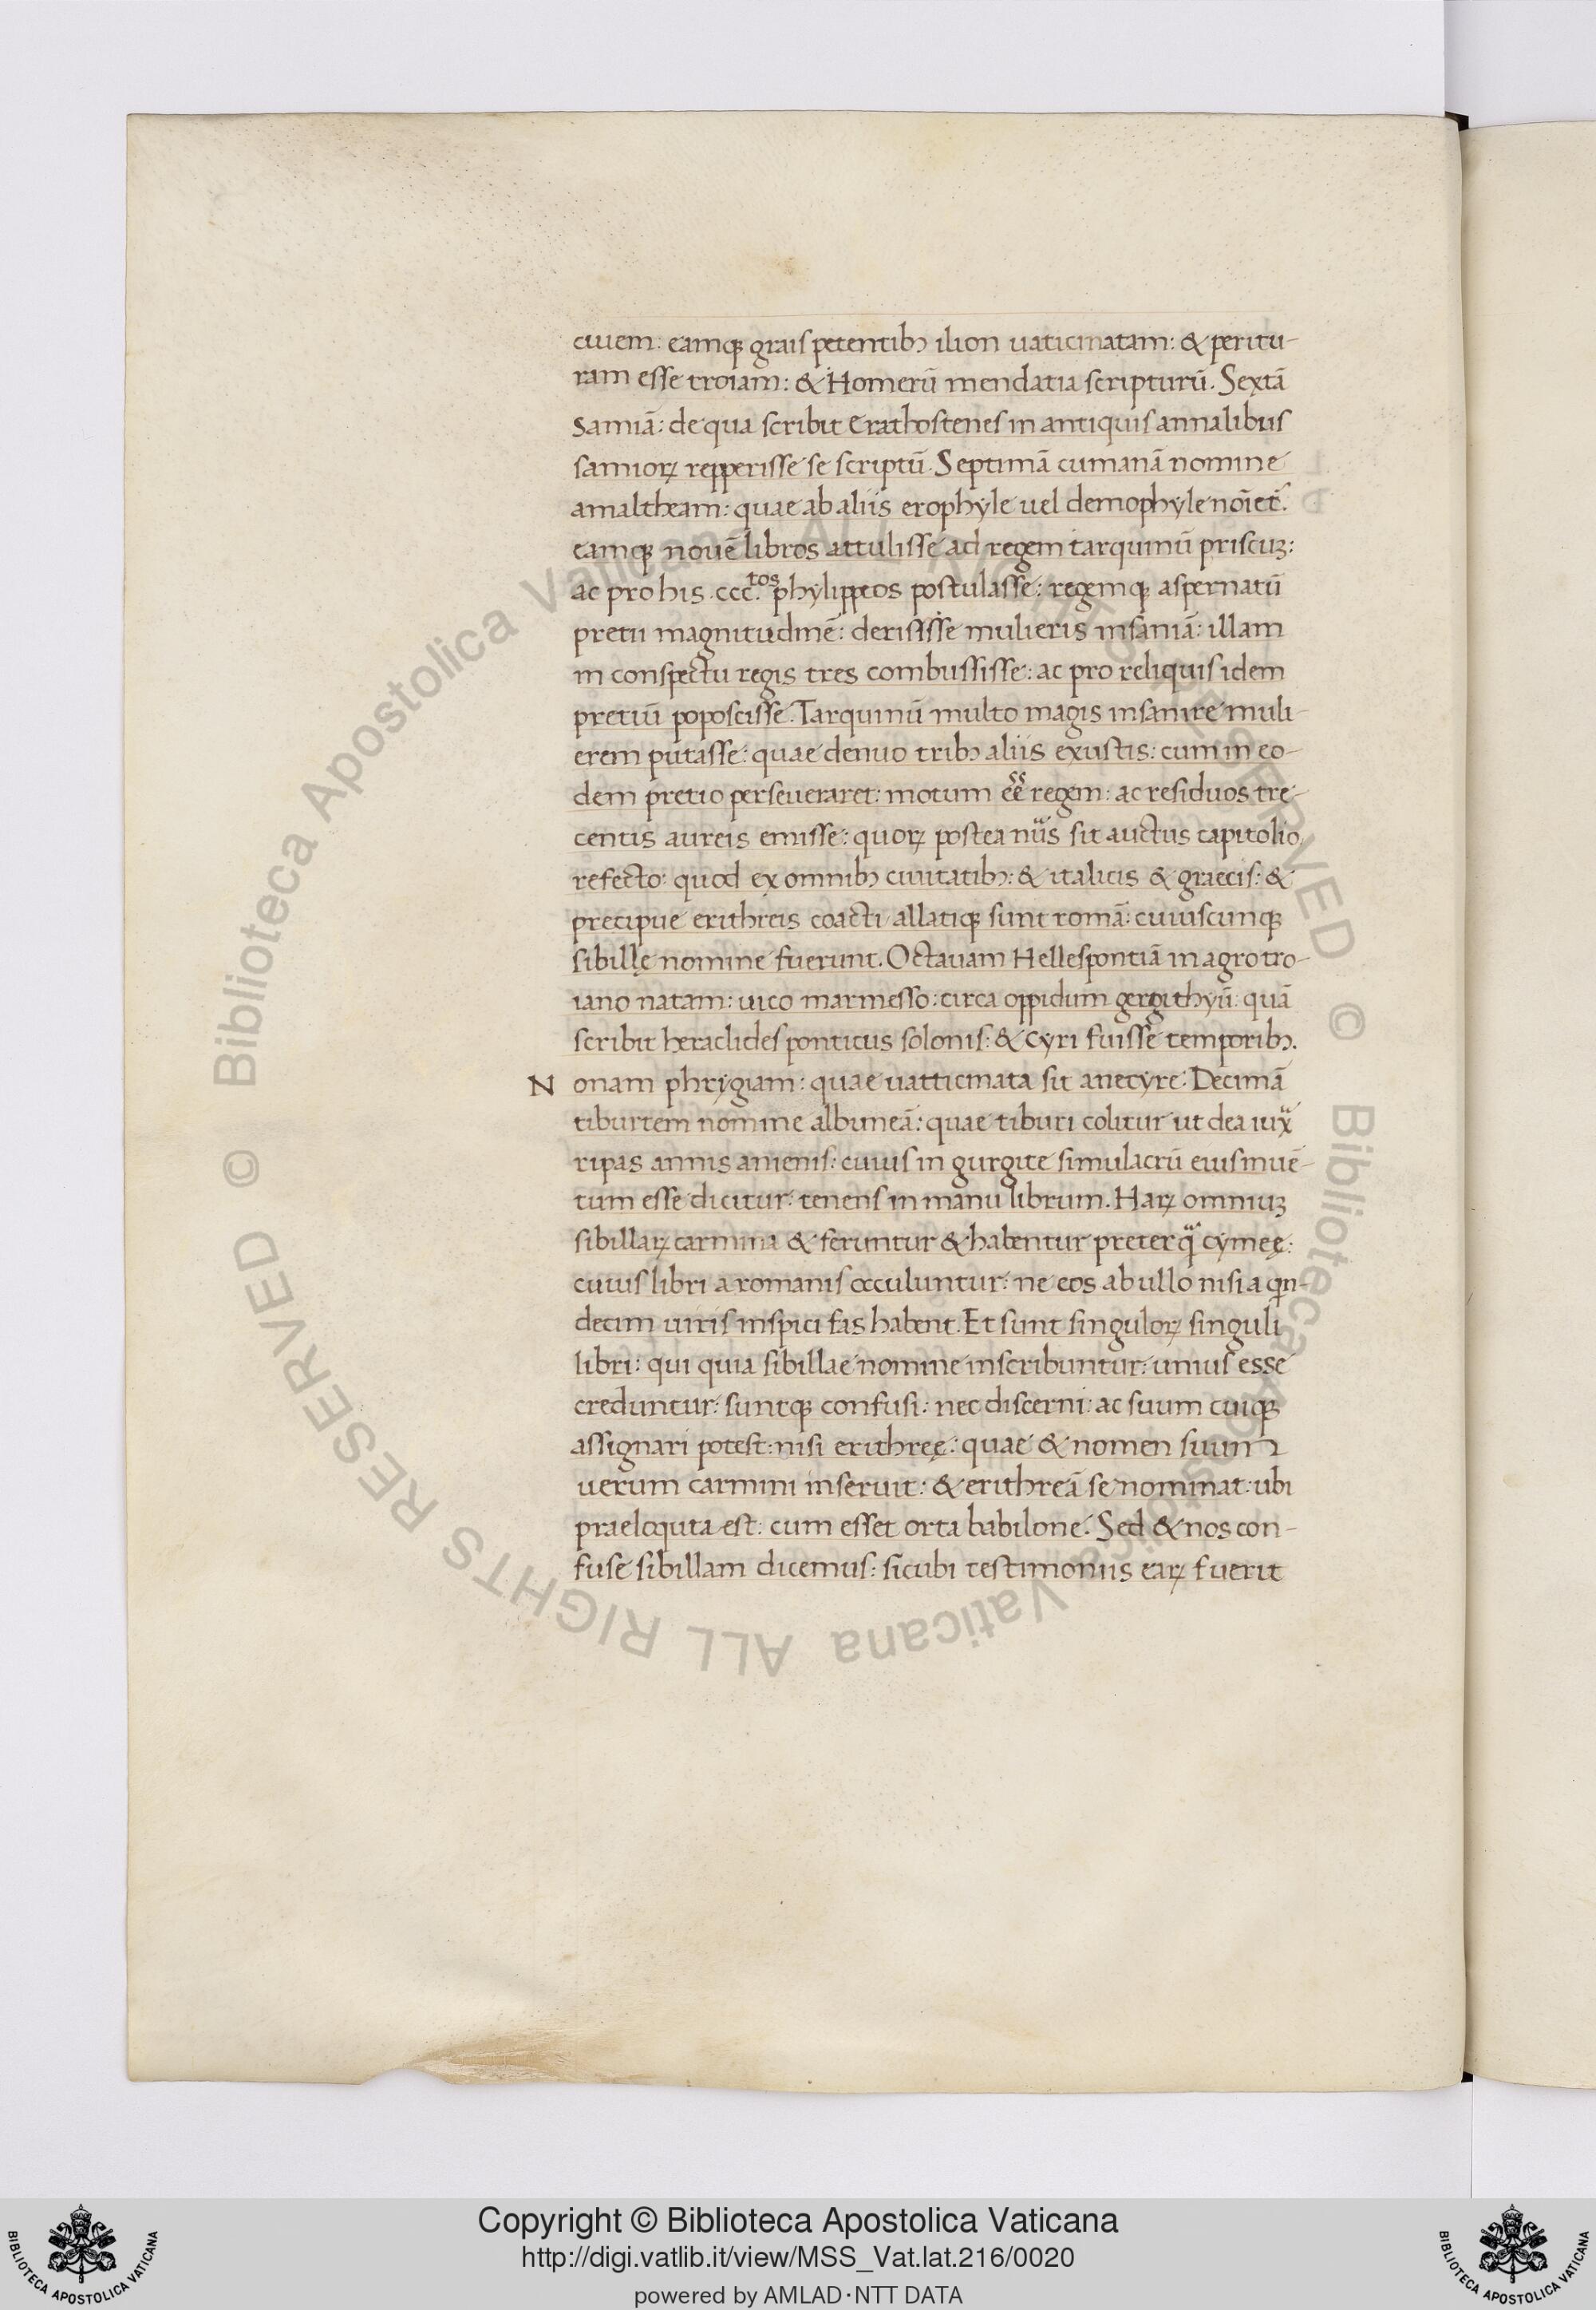 ciuem: eamqꝫ grais petentibꝫ ilion uaticinatam: & peritu-
ram esse troiam: & Homerū mendatia scripturū. Sextā
Samiā: de qua scribit Erathostenes in antiquis annalibus
samioꝝ repperisse se scriptū. Septimā cumanā nomine
amaltheam: quae ab aliis erophyle uel demophyle noīet᷑.
eamqꝫ nouē libros attulisse ad regem tarquiniū priscuꝫ:
ac pro his .ccc.tos phylippeos postulasse: regemqꝫ aspernatū
pretii magnitudinē: derisisse mulieris insaniā: illam
in conspectu regis tres combussisse: ac pro reliquis idem
pretiū poposcisse. Tarquiniū multo magis insanire muli-
erem putasse: quae denuo tribꝫ aliis exustis: cum in eo-
dem pretio perseueraret: motum eē regem: ac residuos tre-
centis aureis emisse: quoꝝ postea nūs sit auctus capitolio
refecto: quod ex omnibꝫ ciuitatibꝫ: & italicis & graecis: &
precipue erithreis coacti allatiqꝫ sunt romā: cuiuscunqꝫ
sibillę nomine fuerunt. Octauam Hellespontiā in agro tro-
iano natam: uico marmesso: circa oppidum gergithyū: quā
scribit heraclides ponticus solonis: & Cyri fuisse temporibꝫ.
N onam phrygiam: quae uatticinata sit ancyre: Decimā
tiburtem nomine albuneā: quae tiburi colitur ut dea iuxͣ
ripas amnis anienis: cuius in gurgite simulacrū eius inuē-
tum esse dicitur: tenens in manu librum. Haꝝ omniuꝫ
sibillaꝝ carmina & feruntur & habentur preterqͣ cymeę:
cuius libri a romanis occuluntur: ne eos ab ullo nisi a qin-
decim uiris inspici fas habent. Et sunt singuloꝝ singuli
libri: qui quia sibillae nomine inscribuntur: unius esse
creduntur: suntqꝫ confusi: nec discerni: ac suum cuiqꝫ
assignari potest: nisi erithreę: quae & nomen suum
uerum carmini inseruit: & erithreā se nominat: ubi
praeloquuta est: cum esset orta babilone. Sed & nos con-
fuse sibillam dicemus: sicubi testimoniis eaꝝ fuerit
Copyright © Biblioteca Apostolica Vaticana
http://digi.vatlib.it/view/MSS_Vat.lat.216/0020
powered by AMLAD·NTT DATA